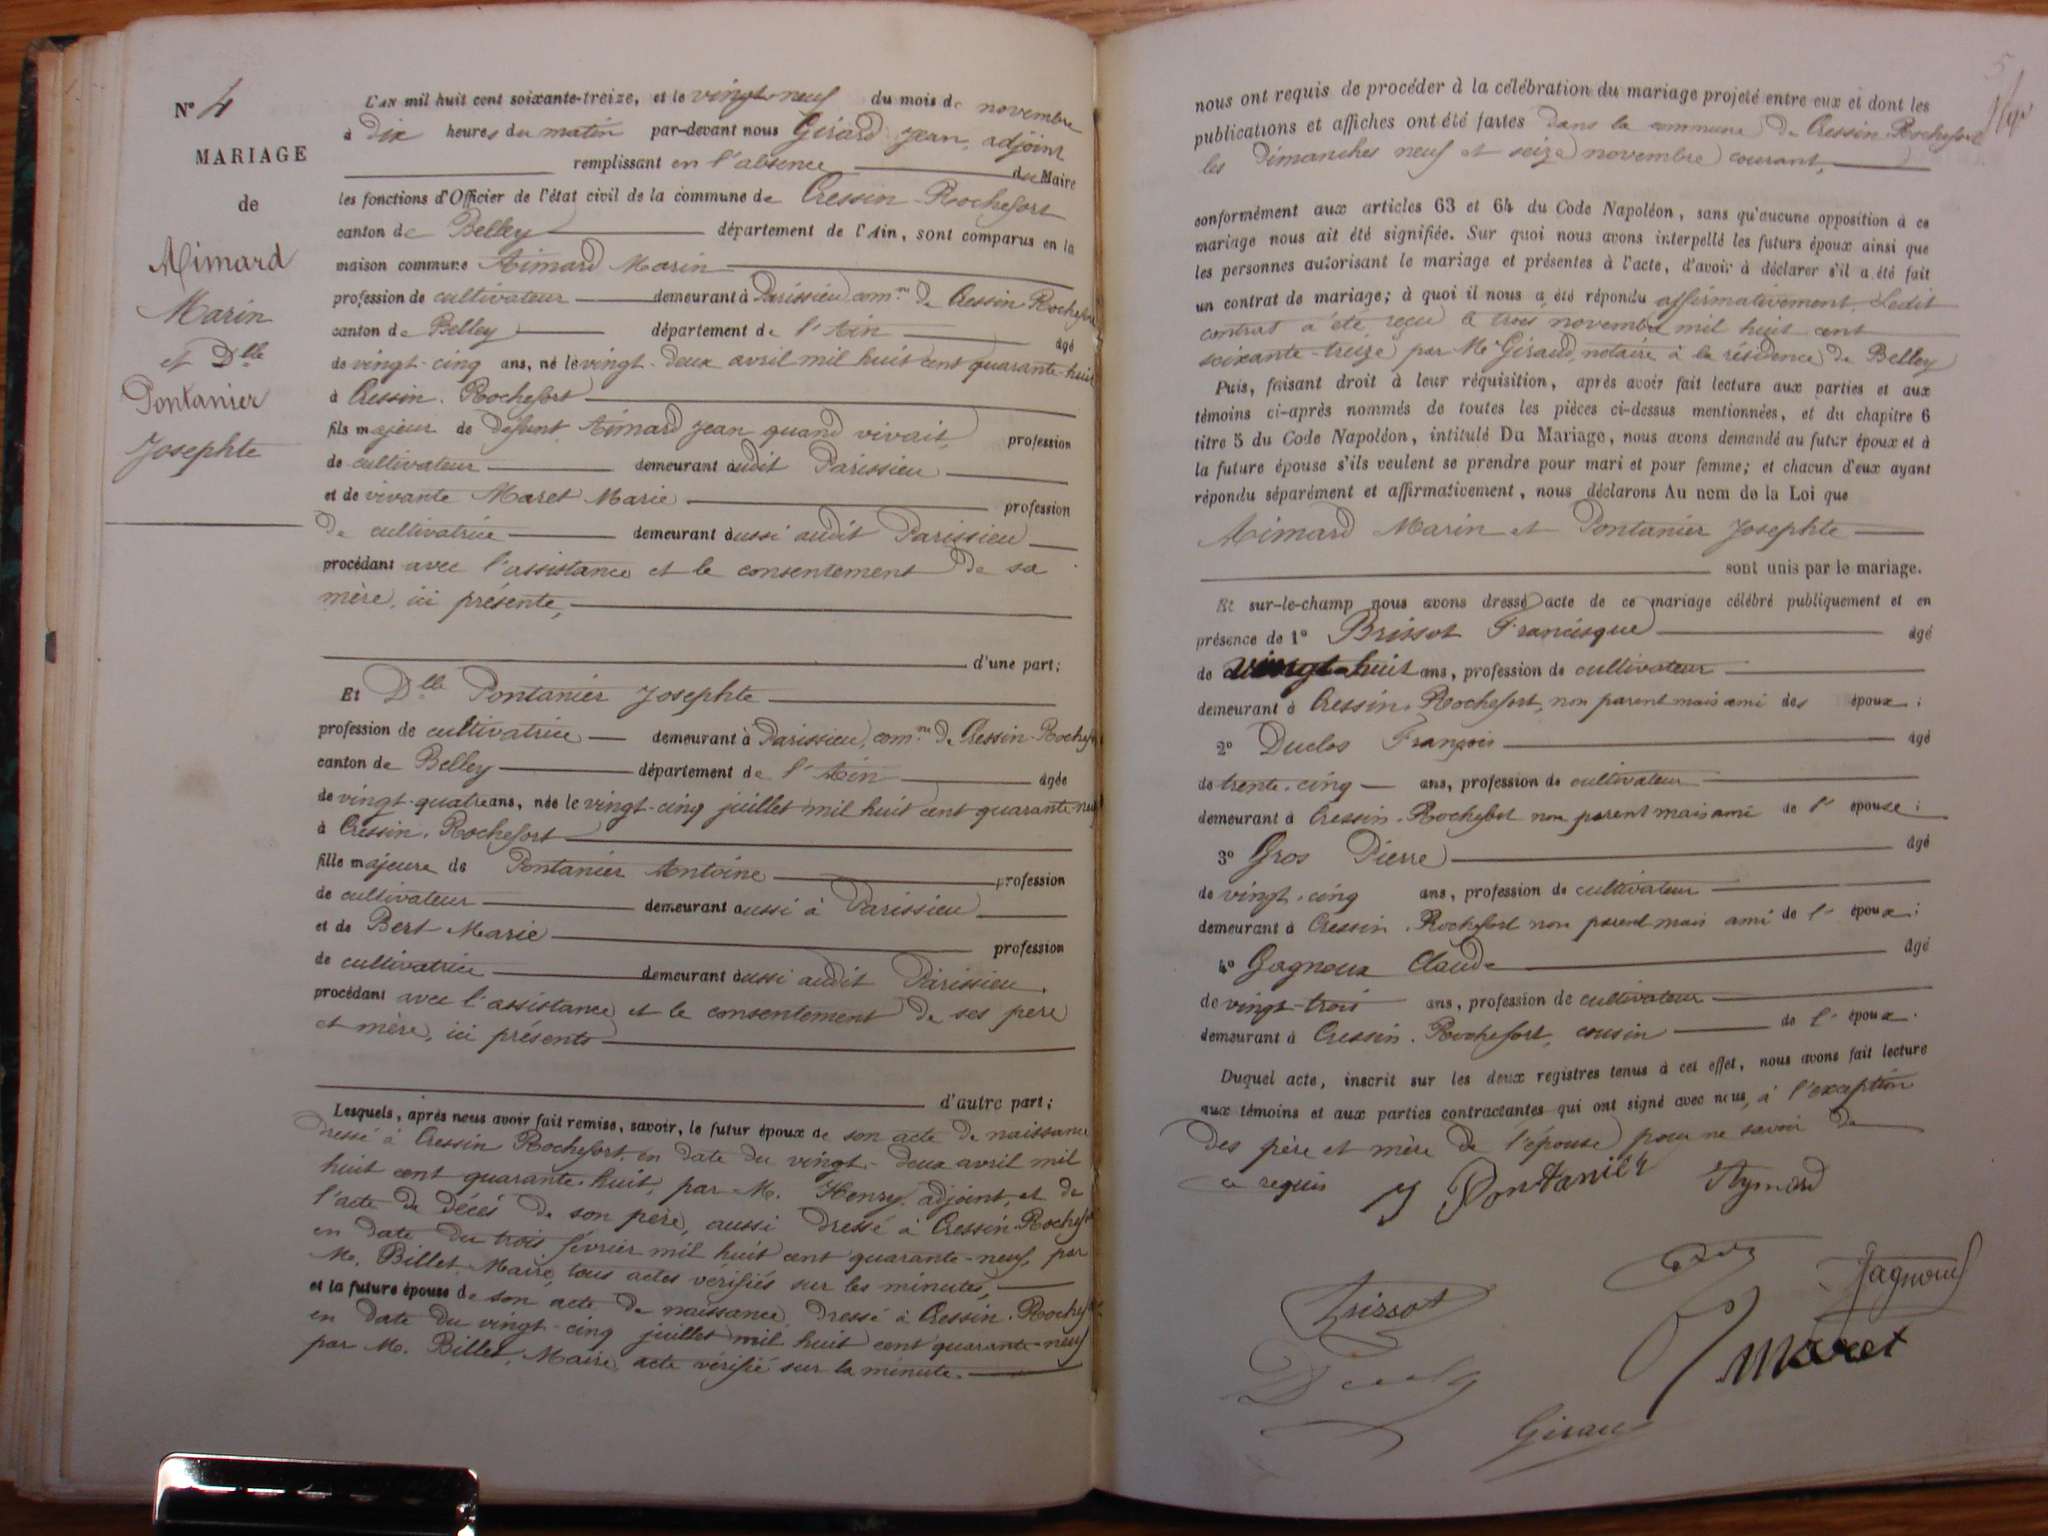 N° 4
MARIAGE
de
Aimard
Marin
et Dlle
Pontanier
Josephte
L'AN mil huit cent soixante-treize, et le vingt-neuf du mois de novembre
à dix heures du matin par-devant nous Girard Jean, adjoint
remplissant en l'absence du Maire
les fonctions d'Officier de l'état civil de la commune de Cressin-Rochefort
canton de Belley département de l'Ain, sont comparus en la
maison commune Aimard Marin
profession de cultivateur demeurant à Parissieu, comne de Cressin-Rochefort
canton de Belley département de l'Ain âgé
de vingt-cinq ans, né le vingt-deux avril mil huit cent quarante-huit
à Cressin-Rochefort
fils majeur de défunt Aimard Jean quand vivait, profession
de cultivateur demeurant audit Parissieu
et de vivante Maret Marie profession
de cultivatrice demeurant aussi audit Parissieu
procédant avec l'assistance et le consentement de sa
mère, ici présente,
d'une part;
Et Dlle Pontanier Josephte
profession de cultivatrice demeurant à Parissieu, comne de Cressin-Rochefort
canton de Belley département de l'Ain âgée
de vingt-quatre ans, née le vingt-cinq juillet mil huit cent quarante-neuf
à Cressin-Rochefort
fille majeure de Pontanier Antoine profession
de cultivateur demeurant aussi à Parissieu
et de Bert Marie profession
de cultivatrice demeurant aussi audit Parissieu,
procédant avec l'assistance et le consentement de ses père
et mère, ici présents
d'autre part;
Lesquels, après nous avoir fait remise, savoir, le futur époux de son acte de naissance
dressé à Cressin-Rochefort, en date du vingt-deux avril mil
huit cent quarante-huit, par M. Henry, adjoint, et de
l'acte de décès de son père, aussi dressé à Cressin-Rochefort
en date du trois février mil huit cent quarante-neuf, par
M. Billet, Maire, tous actes vérifiés sur les minutes,
et la future épouse de son acte de naissance dressé à Cressin-Rochefort
en date du vingt-cinq juillet mil huit cent quarante-neuf
par M. Billet, Maire, acte vérifié sur la minute.
5
nous ont requis de procéder à la célébration du mariage projeté entre eux et dont les
publications et affiches ont été faites dans la commune de Cressin-Rochefort
les dimanches neuf et seize novembre courant,
conformément aux articles 63 et 64 du Code Napoléon, sans qu'aucune opposition à ce
mariage nous ait été signifiée. Sur quoi nous avons interpellé les futurs époux ainsi que
les personnes autorisant le mariage et présentes à l'acte, d'avoir à déclarer s'il a été fait
un contrat de mariage; à quoi il nous a été répondu affirmativement. Ledit
contrat a été reçu le trois novembre mil huit cent
soixante-treize par Me Giraud, notaire à la résidence de Belley
Puis, faisant droit à leur réquisition, après avoir fait lecture aux parties et aux
témoins ci-après nommés de toutes les pièces ci-dessus mentionnées, et du chapitre 6
titre 5 du Code Napoléon, intitulé Du Mariage, nous avons demandé au futur époux et à
la future épouse s'ils veulent se prendre pour mari et pour femme; et chacun d'eux ayant
répondu séparément et affirmativement, nous déclarons Au nom de la Loi que
Aimard Marin et Pontanier Josephte
sont unis par le mariage.
Et sur-le-champ nous avons dressé acte de ce mariage célébré publiquement et en
présence de 1° Brissot Francisque âgé
de vingt-huit ans, profession de cultivateur
demeurant à Cressin-Rochefort, non parent mais ami des époux;
2° Duclos François âgé
de trente-cinq ans, profession de cultivateur
demeurant à Cressin-Rochefort non parent mais ami de l'épouse;
3° Gros Pierre âgé
de vingt-cinq ans, profession de cultivateur
demeurant à Cressin-Rochefort non parent mais ami de l'époux;
4° Gagnoux Claude âgé
de vingt-trois ans, profession de cultivateur
demeurant à Cressin-Rochefort, cousin de l'époux.
Duquel acte, inscrit sur les deux registres tenus à cet effet, nous avons fait lecture
aux témoins et aux parties contractantes qui ont signé avec nous, à l'exception
des père et mère de l'épouse pour ne savoir de
ce requis J Pontanier Aymard
Gagnoux
Brissot
Maret
Duclos
Girard